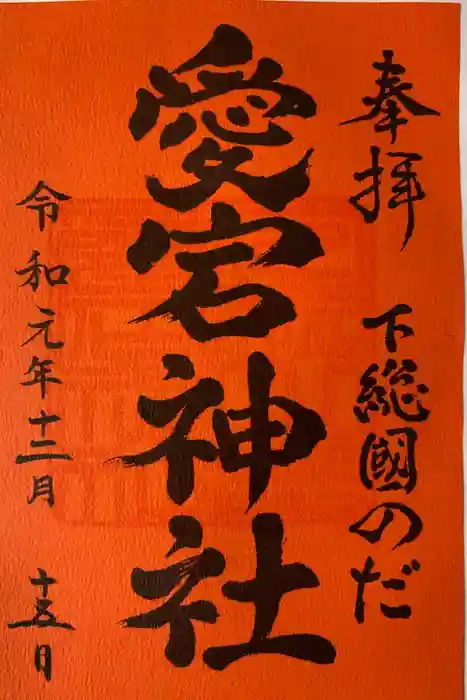 奉拝 下総國のだ
愛宕神社
令和元年十二月 十五日